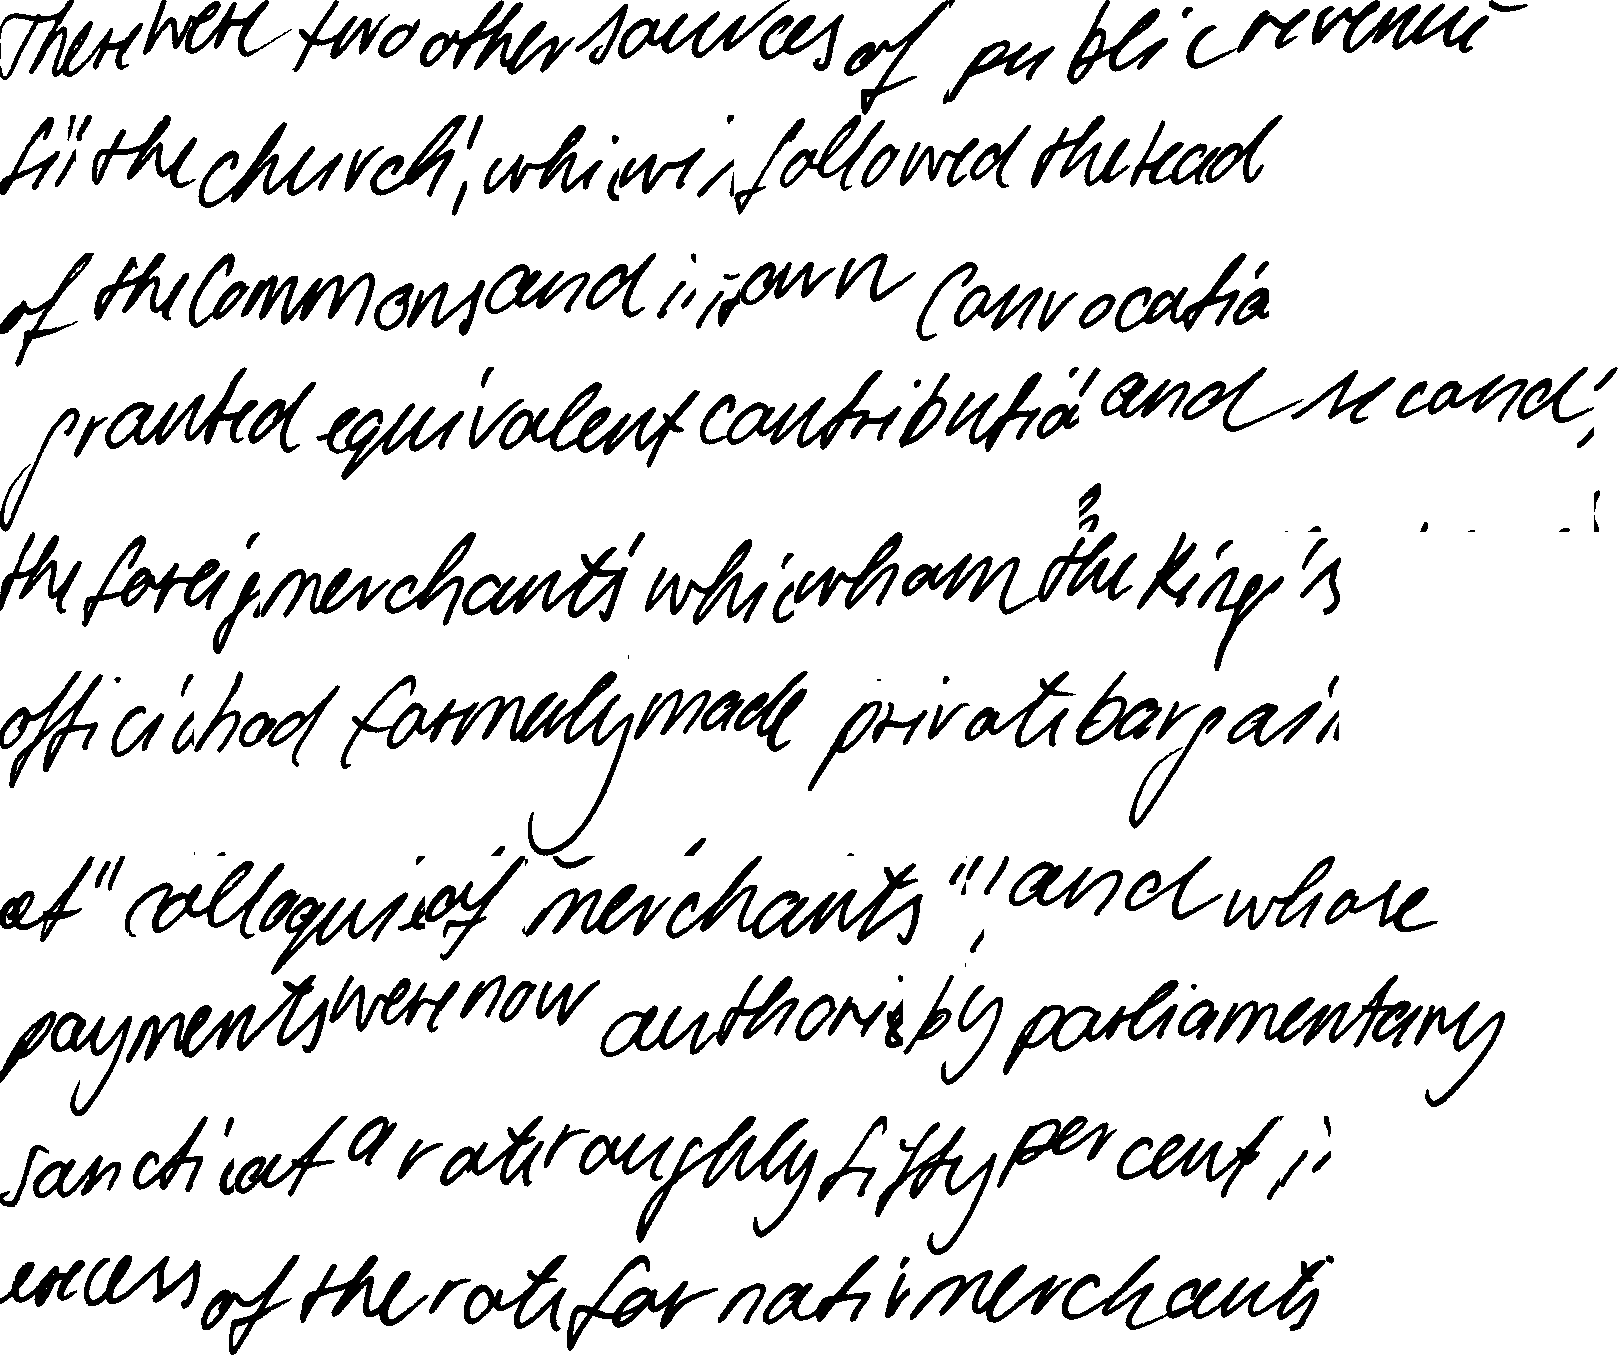 There were two other sources of public revenue
the church, which followed the lead
of the Commons and own Convocation
granted equivalent contribution and second,
the foreign merchants whom the King's
had formerly made private bargain
at " colloquies of merchants ", and whose
payments were now by parliamentary
at a rate roughly fifty per cent
excess of the rate for native merchants